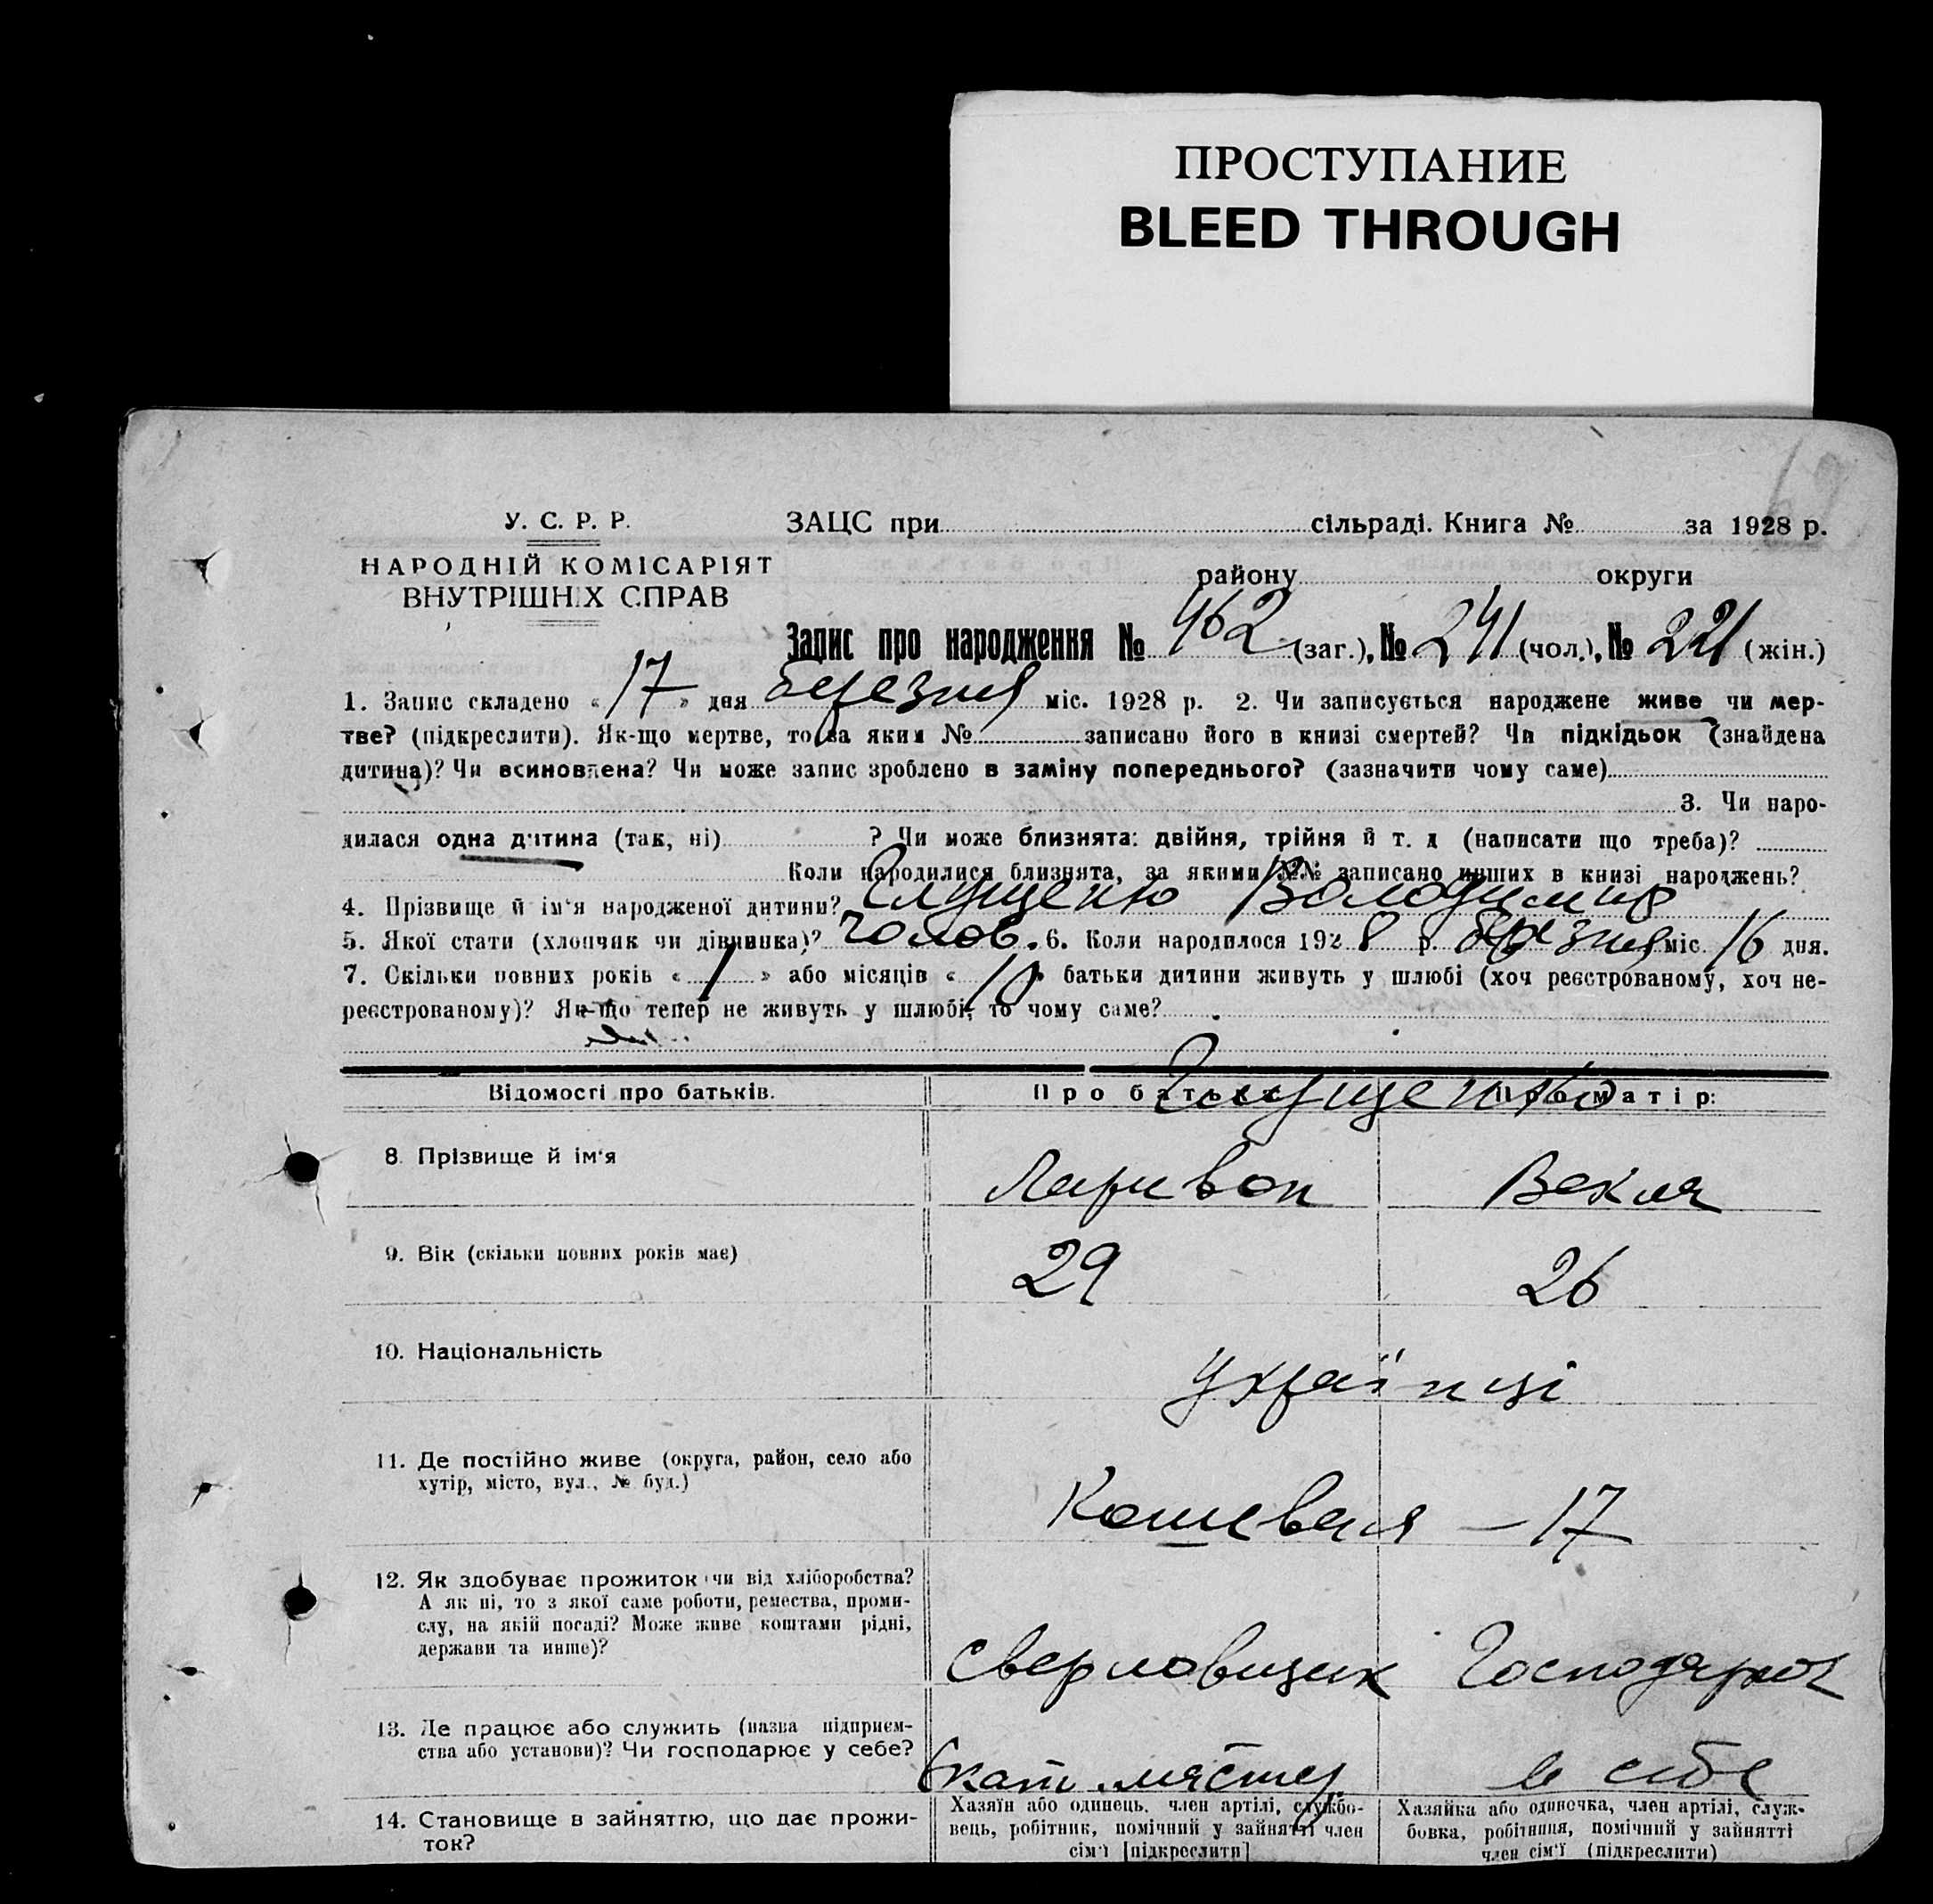 ПРОСТУПАНИЕ
BLEED THROUGH
У. С. Р. Р.
ЗАЦС при сільраді. Книга № за 1928 р.
НАРОДНІЙ КОМІСАРІЯТ
ВНУТРІШНІХ СПРАВ
району округи
Запис про народження № 462 (заг.), № 241 (чол.), № 221 (жін.)
1. Запис складено « 17 » дня березня міс. 1928 р. 2. Чи записується народжене живе чи мер-
тве? (підкреслити). Як-що мертве, то за яким № записано його в книзі смертей? Чи підкідьок (знайдена
дитина)? Чи всиновлена? Чи може запис зроблено в заміну попереднього? (зазначити чому саме)
3. Чи наро-
дилася одна дитина (так, ні) ? Чи може близнята: двійня, трійня й т. д (написати що треба)?
Коли народилися близнята, за якими №№ записано инших в книзі народжень?
4. Прізвище й ім'я народженої дитини? Глущенко Володимир
5. Якої стати (хлопчик чи дівчинка)? чолов. 6. Коли народилося 1928 р. березня міс. 16 дня.
7. Скільки повних років « 1 » або місяців « 10 » батьки дитини живуть у шлюбі (хоч реєстрованому, хоч не-
реєстрованому)? Як-що тепер не живуть у шлюбі, то чому саме?
Відомості про батьків. Про батька: Про матір:
Глущенко
8. Прізвище й ім'я Ларивон Векля
9. Вік (скільки повних років має) 29 26
10. Національність Українці
11. Де постійно живе (округа, район, село або
хутір, місто, вул., № буд.)
Кошевая – 17
12. Як здобуває прожиток (чи від хліборобства?
А як ні, то з якої саме роботи, ремества, проми-
слу, на якій посаді? Може живе коштами рідні,
держави та инше)?
сверловщик Господарює
13. Де працює або служить (назва підприєм-
ства або установи)? Чи господарює у себе?
в себе
14. Становище в зайняттю, що дає прожи-
ток?
Хазяїн або одинець, член артілі, службо-
вець, робітник, помічний у зайнятті член
сім'ї [підкреслити]
Хазяйка або одиночка, член артілі, служ-
бовка, робітниця, помічний у зайнятті
член сім'ї (підкреслити)